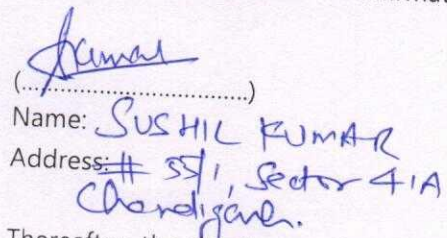 Kumar
(................................)
Name: SUSHIL KUMAR
Address: # 551, Sector 41A
Chandigarh.